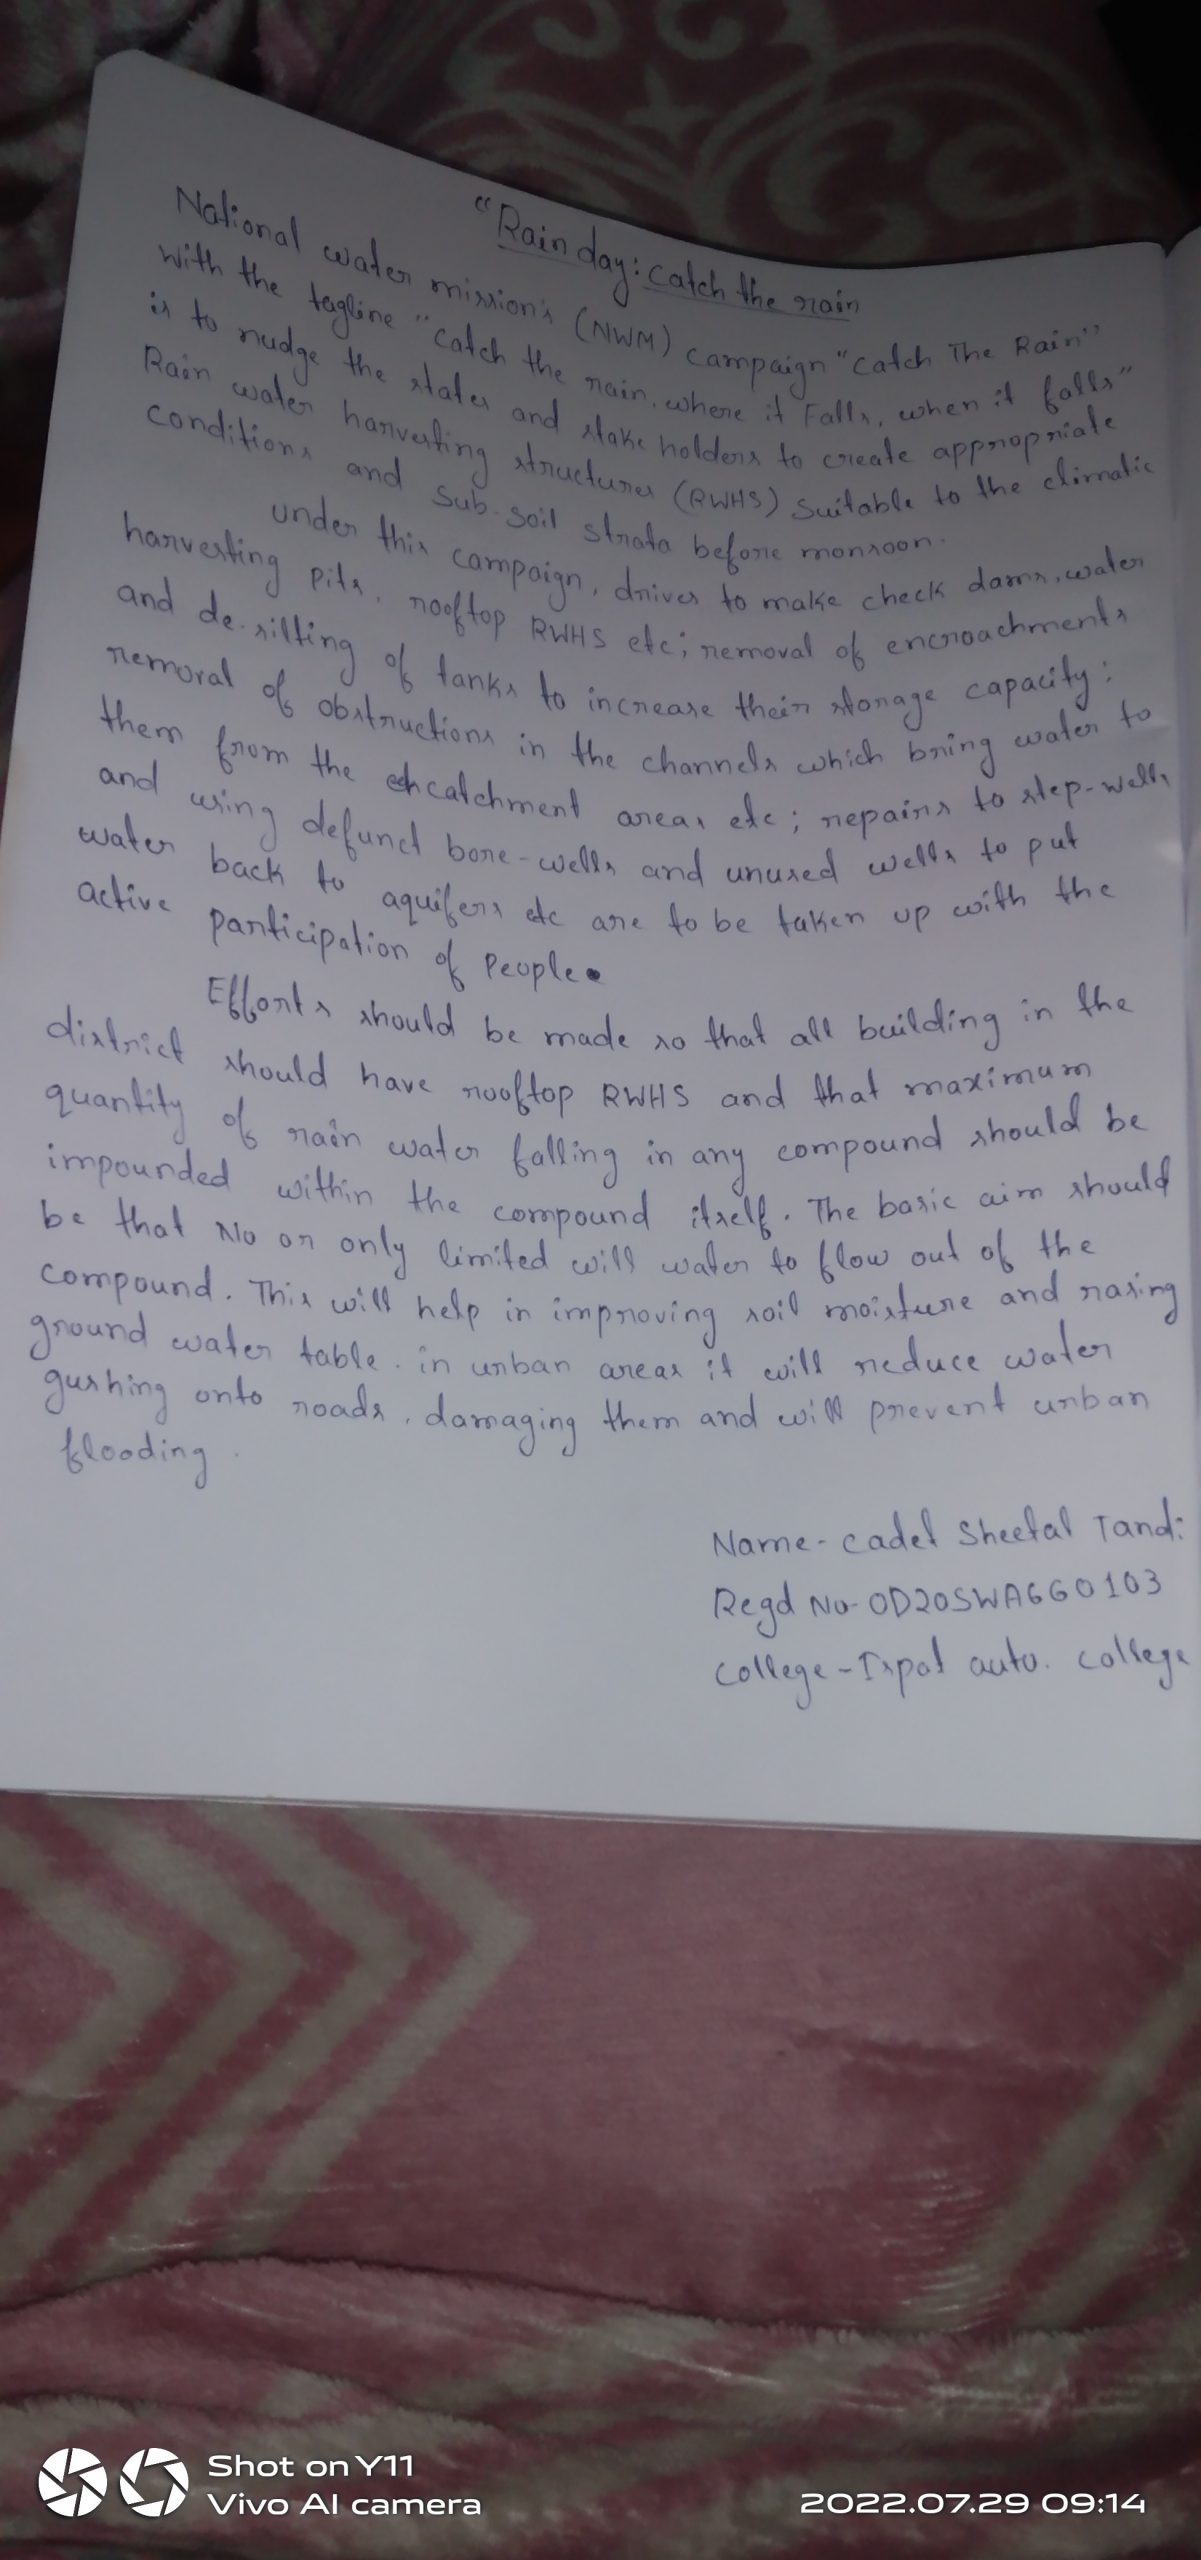 "Rain day: catch the rain
National water mission's (NWM) campaign "catch The Rain"
with the tagline "catch the rain, where it Falls, when it falls"
is to nudge the states and stake holders to create appropriate
Rain water harvesting structures (RWHS) suitable to the climatic
conditions and sub-soil strata before monsoon.
under this campaign, drives to make check dams, water
harvesting pits, rooftop RWHS etc; removal of encroachments
and de-silting of tanks to increase their storage capacity;
removal of obstructions in the channels which bring water to
them from the catchment areas etc; repairs to step-wells
and using defunct bore-wells and unused wells to put
water back to aquifers etc are to be taken up with the
active participation of people.
Efforts should be made so that all building in the
district should have rooftop RWHS and that maximum
quantity of rain water falling in any compound should be
impounded within the compound itself. The basic aim should
be that No or only limited will water to flow out of the
compound. This will help in improving soil moisture and rasing
ground water table. in urban areas it will reduce water
gushing onto roads, damaging them and will prevent urban
flooding.
Name- cadet Sheetal Tandi
Regd No- OD20SWA660103
college - Ispat auto. college
Shot on Y11
Vivo AI camera
2022.07.29 09:14